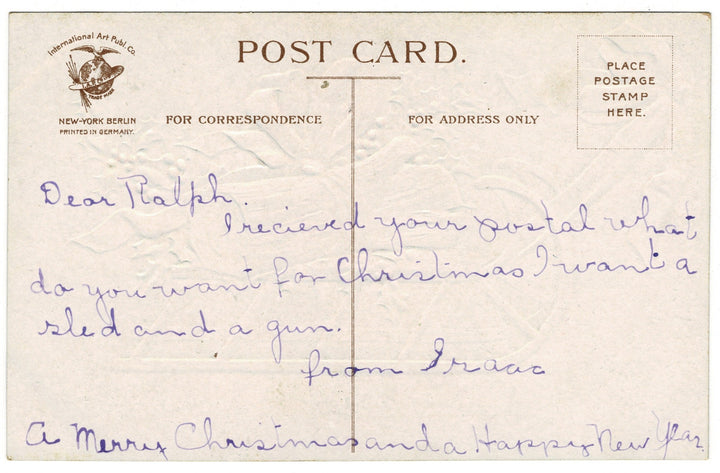 International Art Publ. Co.
TRADE MARK
NEW-YORK BERLIN
PRINTED IN GERMANY.
POST CARD.
FOR CORRESPONDENCE
FOR ADDRESS ONLY
PLACE
POSTAGE
STAMP
HERE.
Dear Ralph.
I recieved your postal what
do you want for Christmas I want a
sled and a gun.
from Isaac
A Merry Christmas and a Happy New Year